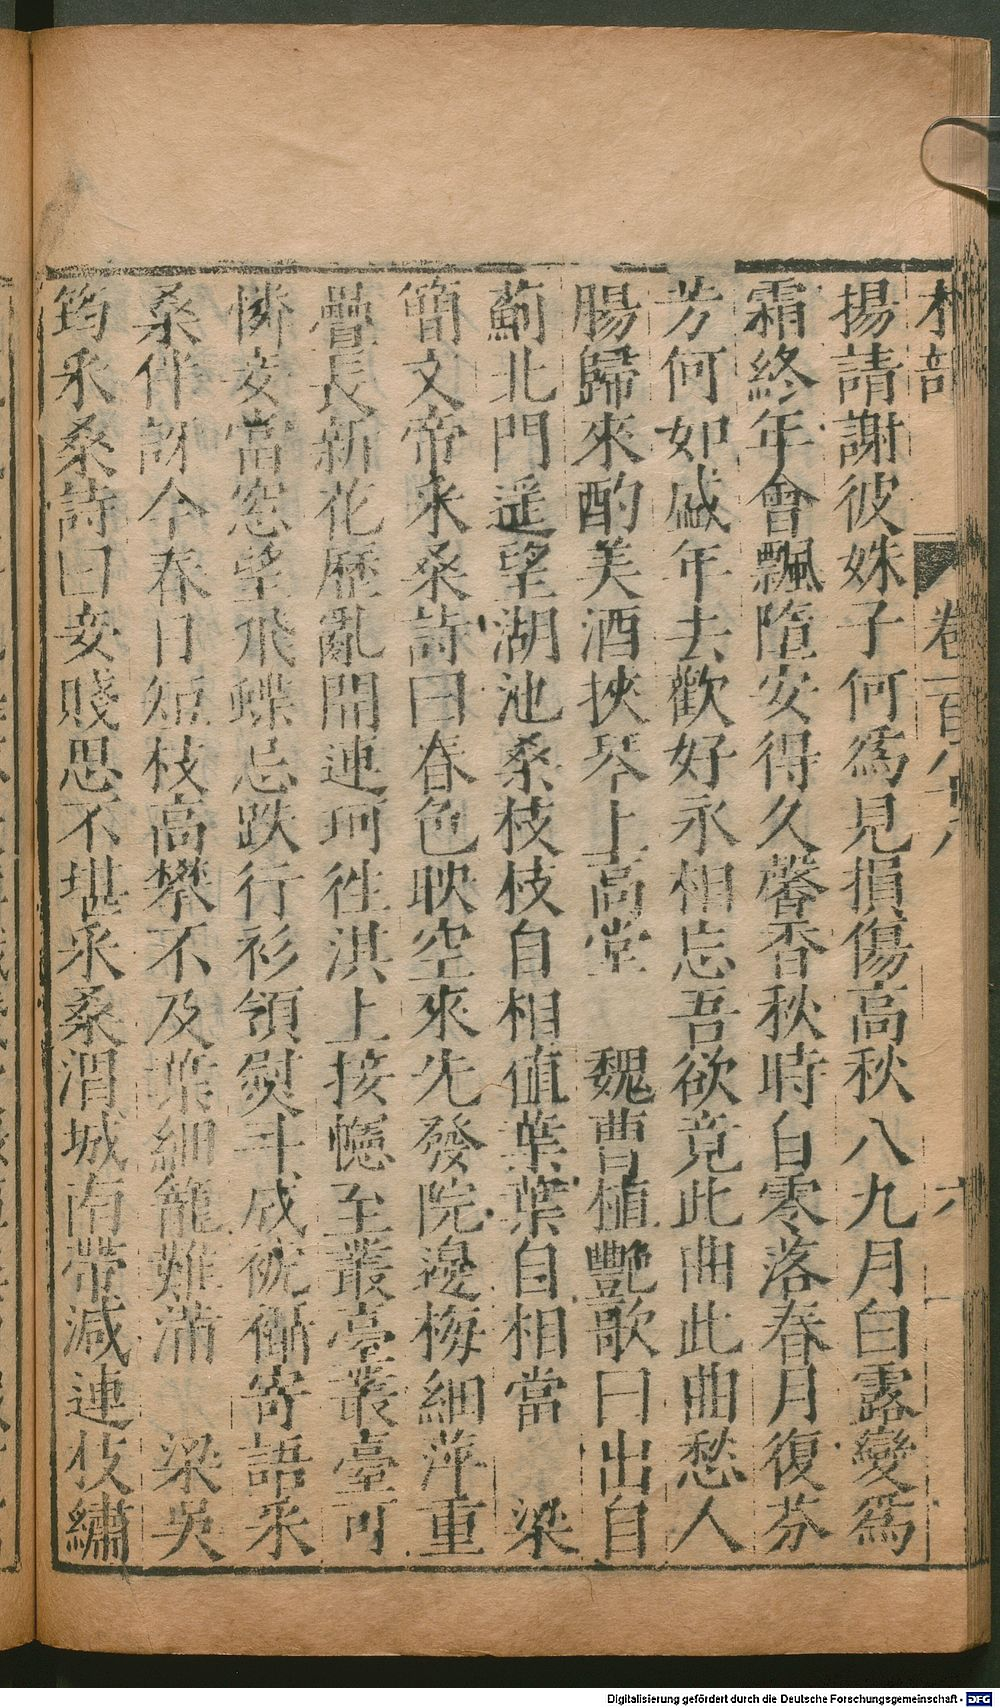 木部 卷一百八十八 六
揚請謝彼姝子何爲見損傷高秋八九月白露變爲
霜終年會飄墮安得久馨香秋時自零落春月復芬
芳何如盛年去歡好永相忘吾欲竟此曲此曲愁人
腸歸來酌美酒挾琴上高堂 魏曹植豔歌曰出自
薊北門遥望湖池桑枝枝自相值葉葉自相當 梁
簡文帝采桑詩曰春色映空來先發院邊梅細萍重
疊長新花歷亂開連珂往淇上接幰至叢臺叢臺可
憐妾當窓望飛蝶忌跌行衫領熨斗成裭襵寄語采
桑伴訝今春日短枝高攀不及葉細籠難滿 梁吳
筠采桑詩曰妾賤思不堪采桑渭城南帶減連枝繡
Digitalisierung gefördert durch die Deutsche Forschungsgemeinschaft - DFG